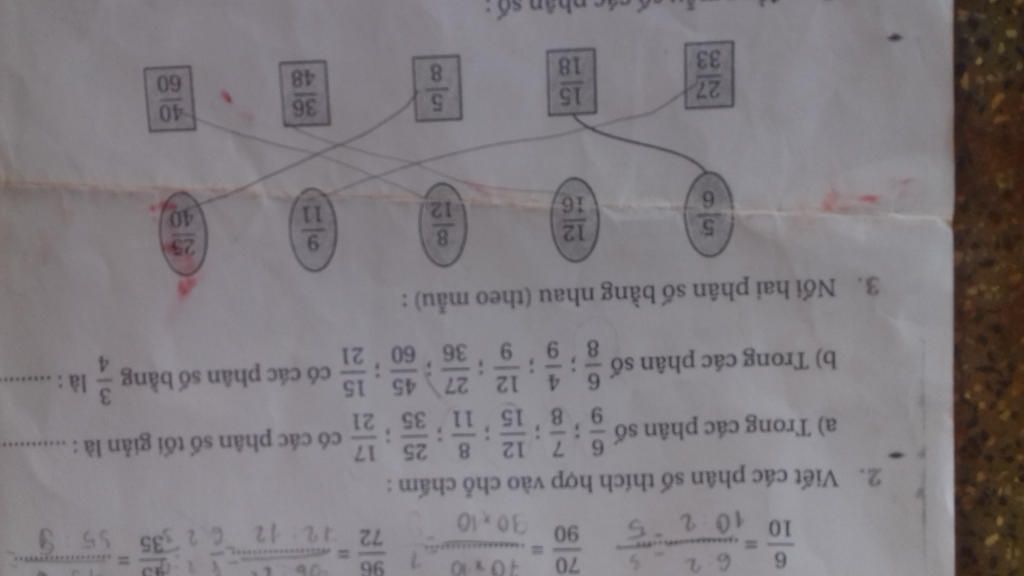 6/10 = 6:2/10:2 = 3/5 70/90 = 96/72 = 35 =
2. Viết các phân số thích hợp vào chỗ chấm :
a) Trong các phân số 6/9 ; 7/8 ; 12/15 ; 8/11 ; 25/35 ; 17/21 có các phân số tối giản là : ..........
b) Trong các phân số 6/8 ; 4/9 ; 12/9 ; 27/36 ; 45/60 ; 15/21 có các phân số bằng 3/4 là : ..........
3. Nối hai phân số bằng nhau (theo mẫu) :
5/6 12/16 8/12 9/11 25/40
27/33 15/18 5/8 36/48 40/60
mẫu số các phân số :